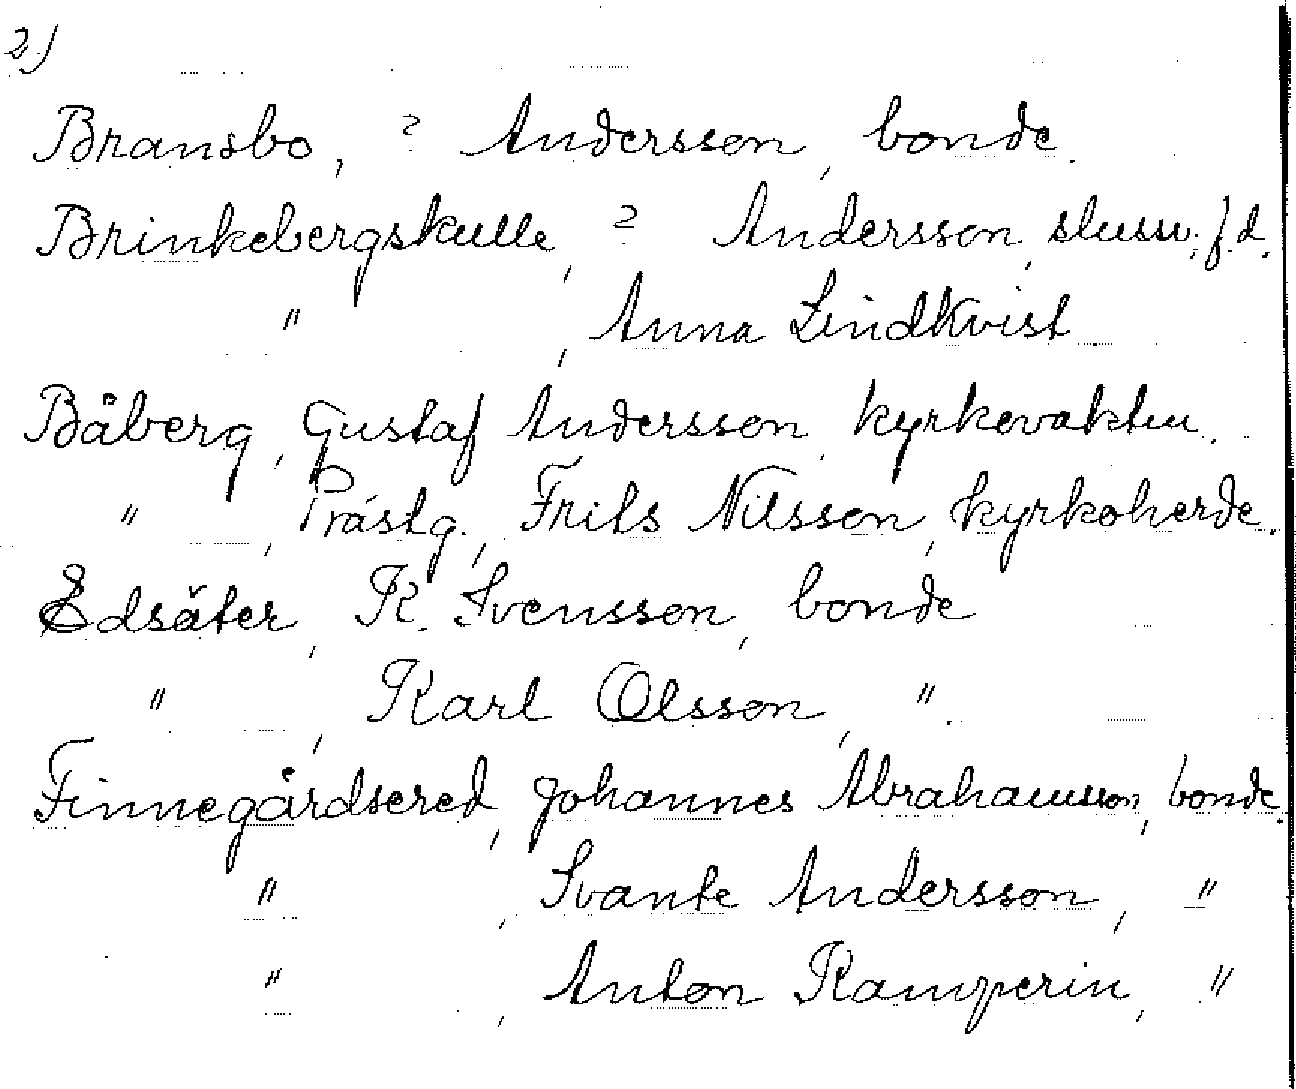 2)
Bransbo, ? Andersson, bonde.
Brinkebergskulle, ? Andersson, slussv. f.d.
" , Anna Lindkvist
Båberg, Gustaf Andersson, kyrkovakten.
" , Prästg., Frits Nilsson, kyrkoherde.
Edsäter, K. Svensson, bonde
" , Karl Olsson, ".
Finnegårdsered, Johannes Abrahamsson, bonde.
" , Svante Andersson, "
" , Anton Kamperin, "